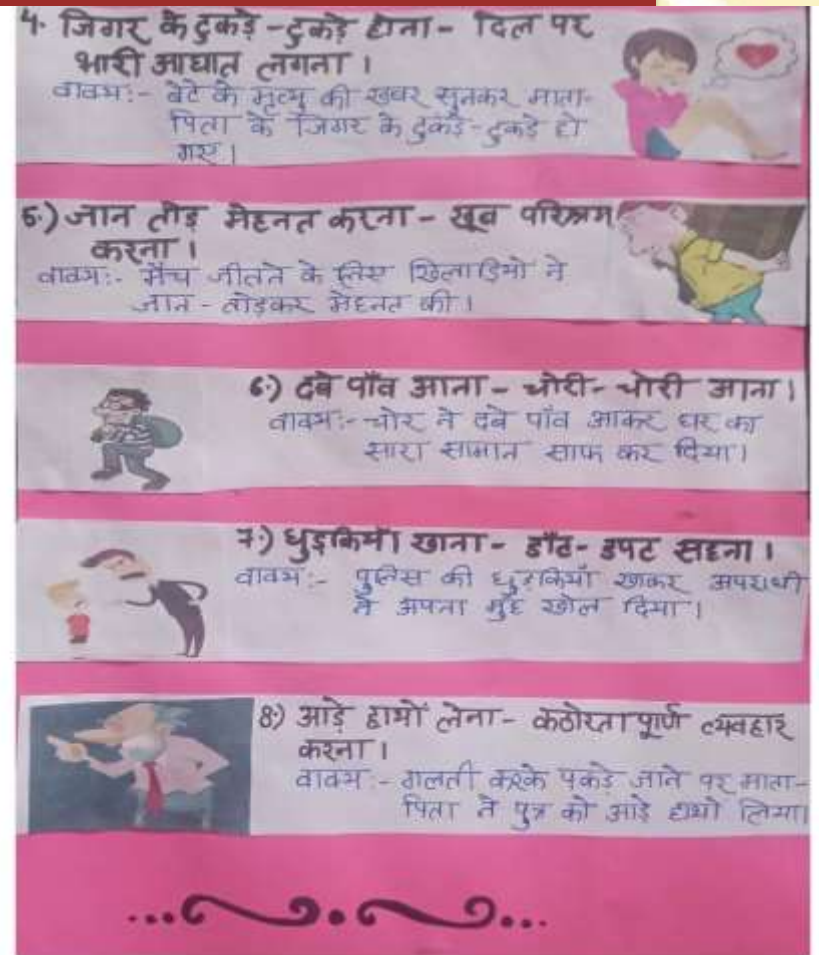 4. जिगर के टुकड़े-टुकड़े होना - दिल पर
भारी आघात लगना।
वाक्य:- बेटे के मृत्यु की खबर सुनकर माता-
पिता के जिगर के टुकड़े-टुकड़े हो
गए।
5.) जान तोड़ मेहनत करना - खूब परिश्रम
करना।
वाक्य:- मैच जीतने के लिए खिलाड़ियों ने
जान-तोड़कर मेहनत की।
6.) दबे पाँव आना - चोरी-चोरी आना।
वाक्य:- चोर ने दबे पाँव आकर घर का
सारा सामान साफ कर दिया।
7.) घुड़कियाँ खाना - डाँट-डपट सहना।
वाक्य:- पुलिस की घुड़कियाँ खाकर अपराधी
ने अपना मुँह खोल दिया।
8.) आड़े हाथों लेना - कठोरतापूर्ण व्यवहार
करना।
वाक्य:- गलती करके पकड़े जाने पर माता-
पिता ने पुत्र को आड़े हाथों लिया।